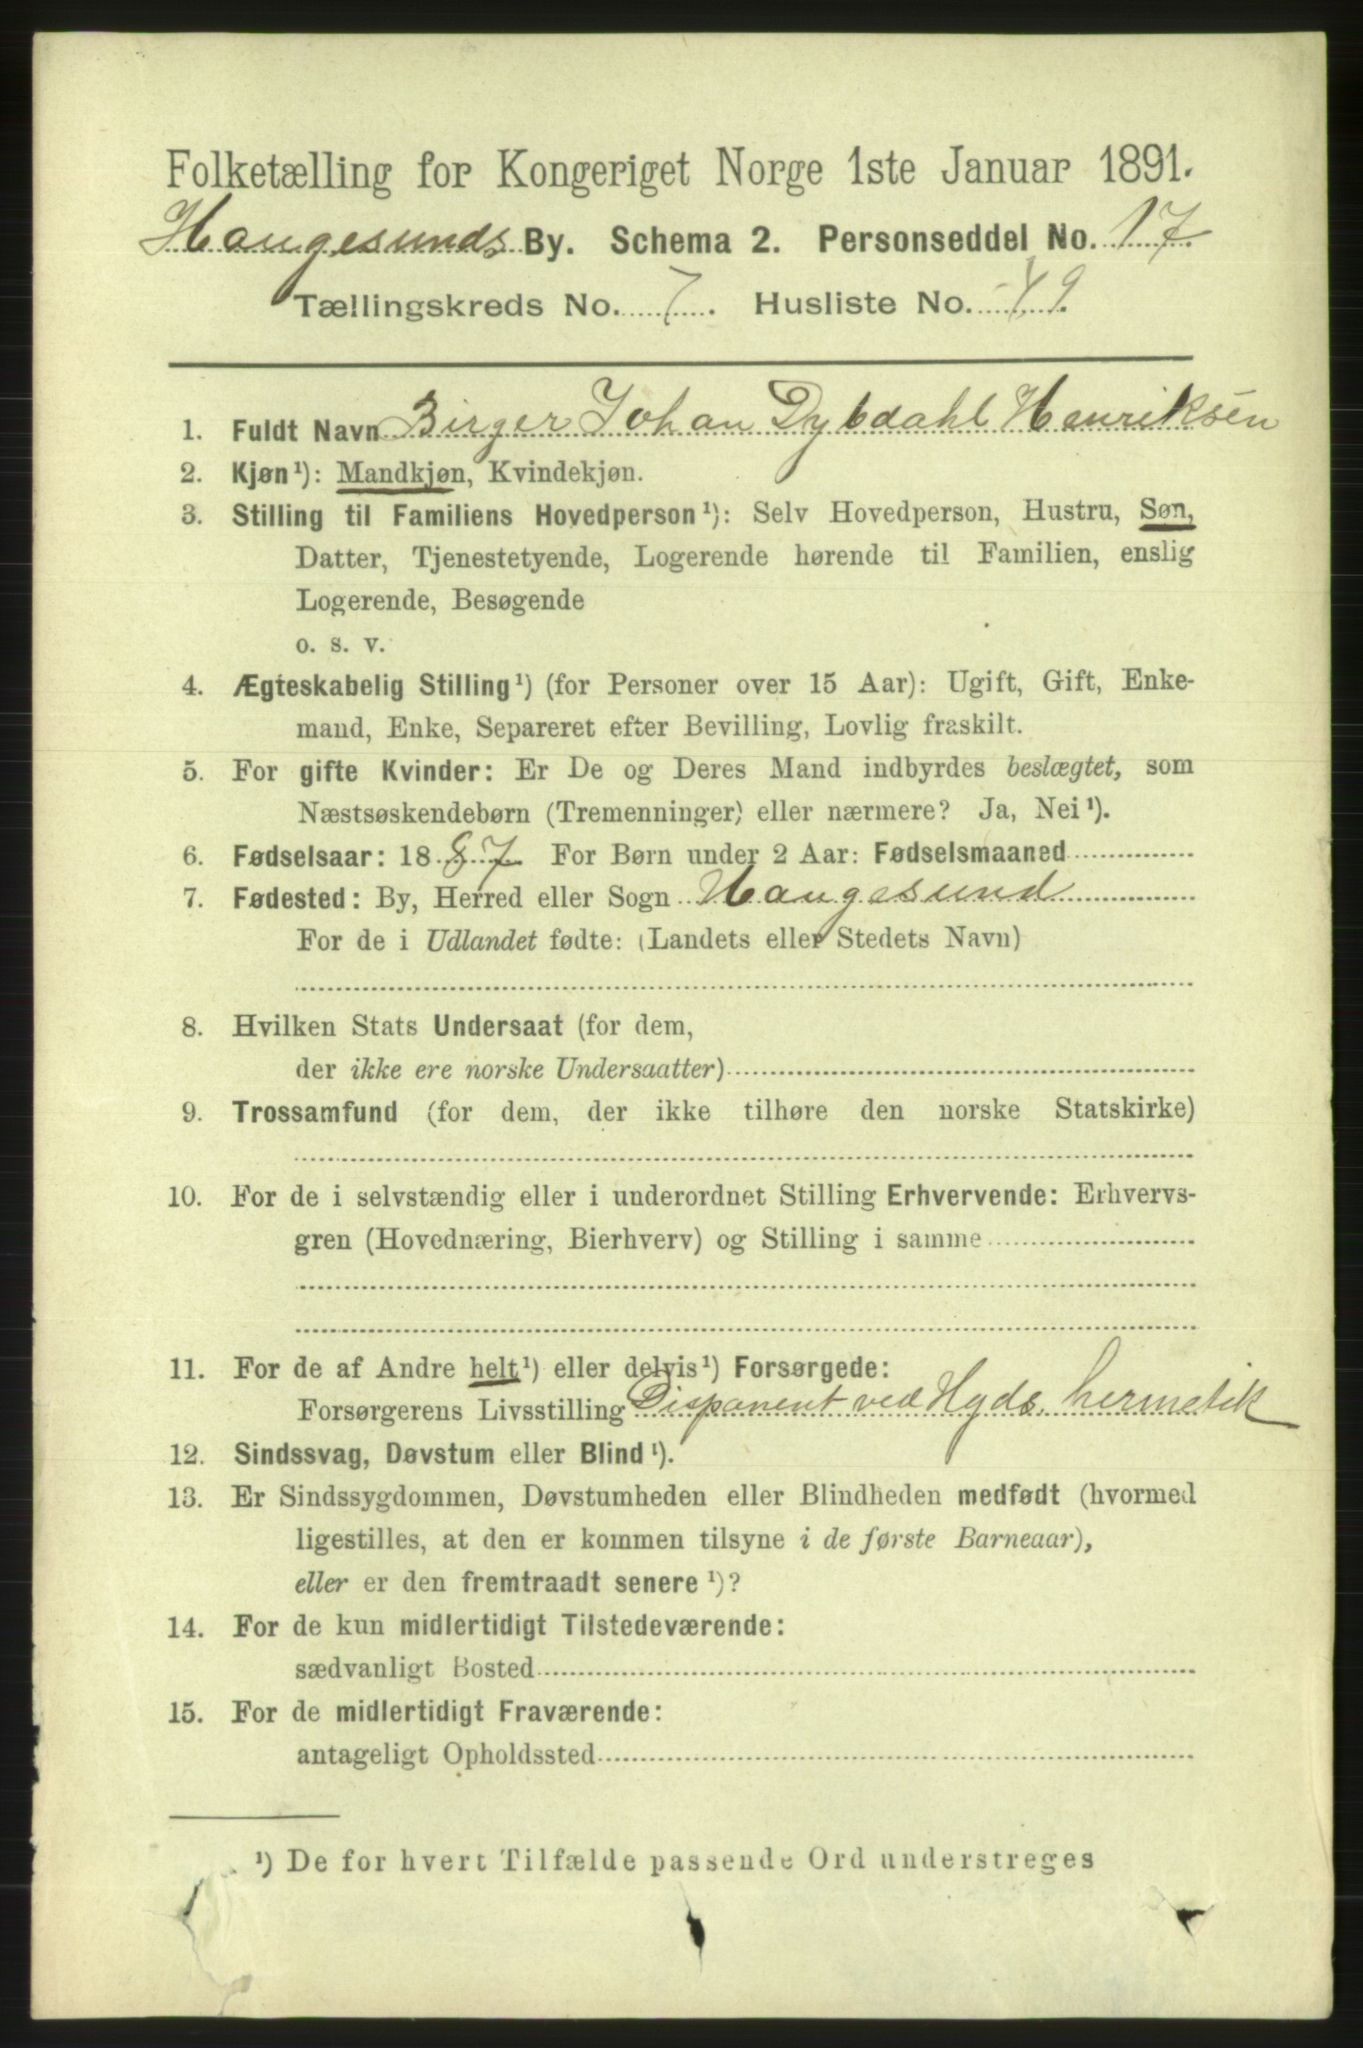 Folketælling for Kongeriget Norge 1ste Januar 1891.
Haugesunds By. Schema 2. Personseddel No. 17
Tællingskreds No. 7. Husliste No. 49.
1. Fuldt Navn Birger Johan Dybdahl Henriksen
2. Kjøn¹): Mandkjøn, Kvindekjøn.
3. Stilling til Familiens Hovedperson¹): Selv Hovedperson, Hustru, Søn,
Datter, Tjenestetyende, Logerende hørende til Familien, enslig
Logerende, Besøgende
o. s. v.
4. Ægteskabelig Stilling¹) (for Personer over 15 Aar): Ugift, Gift, Enke-
mand, Enke, Separeret efter Bevilling, Lovlig fraskilt.
5. For gifte Kvinder: Er De og Deres Mand indbyrdes beslægtet, som
Næstsøskendebørn (Tremenninger) eller nærmere? Ja, Nei¹).
6. Fødselsaar: 1887 For Børn under 2 Aar: Fødselsmaaned
7. Fødested: By, Herred eller Sogn Haugesund
For de i Udlandet fødte: (Landets eller Stedets Navn)
8. Hvilken Stats Undersaat (for dem,
der ikke ere norske Undersaatter)
9. Trossamfund (for dem, der ikke tilhøre den norske Statskirke)
10. For de i selvstændig eller i underordnet Stilling Erhvervende: Erhvervs-
gren (Hovednæring, Bierhverv) og Stilling i samme
11. For de af Andre helt¹) eller delvis¹) Forsørgede:
Forsørgerens Livsstilling Disponent ved Hgds. hermetik
12. Sindssvag, Døvstum eller Blind¹).
13. Er Sindssygdommen, Døvstumheden eller Blindheden medfødt (hvormed
ligestilles, at den er kommen tilsyne i de første Barneaar),
eller er den fremtraadt senere¹)?
14. For de kun midlertidigt Tilstedeværende:
sædvanligt Bosted
15. For de midlertidigt Fraværende:
antageligt Opholdssted
¹) De for hvert Tilfælde passende Ord understreges